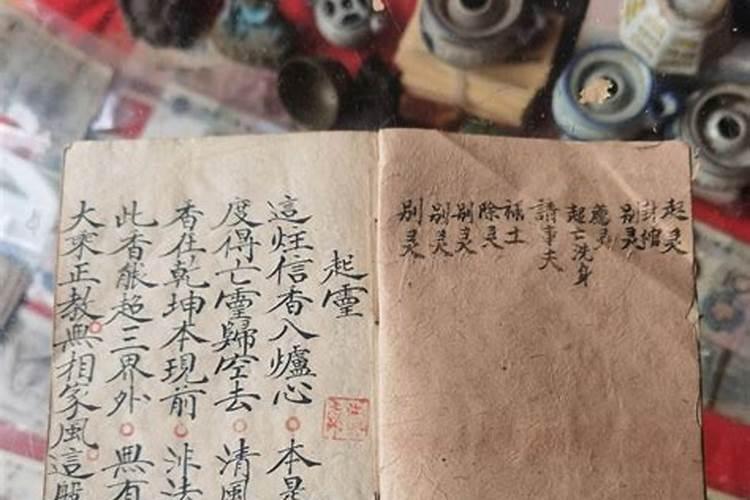 起灵
封棺
别灵
起亡洗身
請事夫
禄土
除灵
别灵
别灵
别灵
起靈
這炷信香入爐心 本是
度得亡靈歸空去 清風
香在乾坤本現前 非法
此香能超三界外 無有
大乘正教無相家風這般